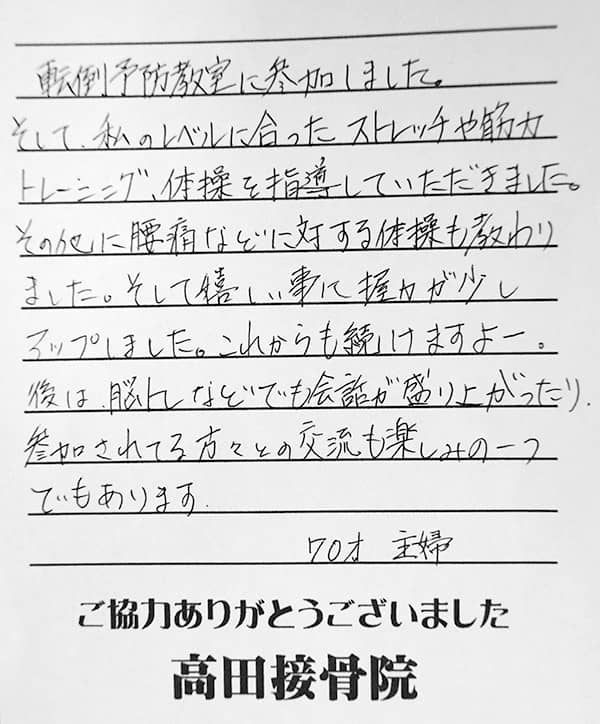 転倒予防教室に参加しました。
そして、私のレベルに合ったストレッチや筋力
トレーニング、体操を指導していただきました。
その他に腰痛などに対する体操も教わり
ました。そして嬉しい事に握力が少し
アップしました。これからも続けますよー。
後は、脳トレなどでも会話が盛り上がったり、
参加されてる方々との交流も楽しみの一つ
でもあります.
70才 主婦
ご協力ありがとうございました
高田接骨院